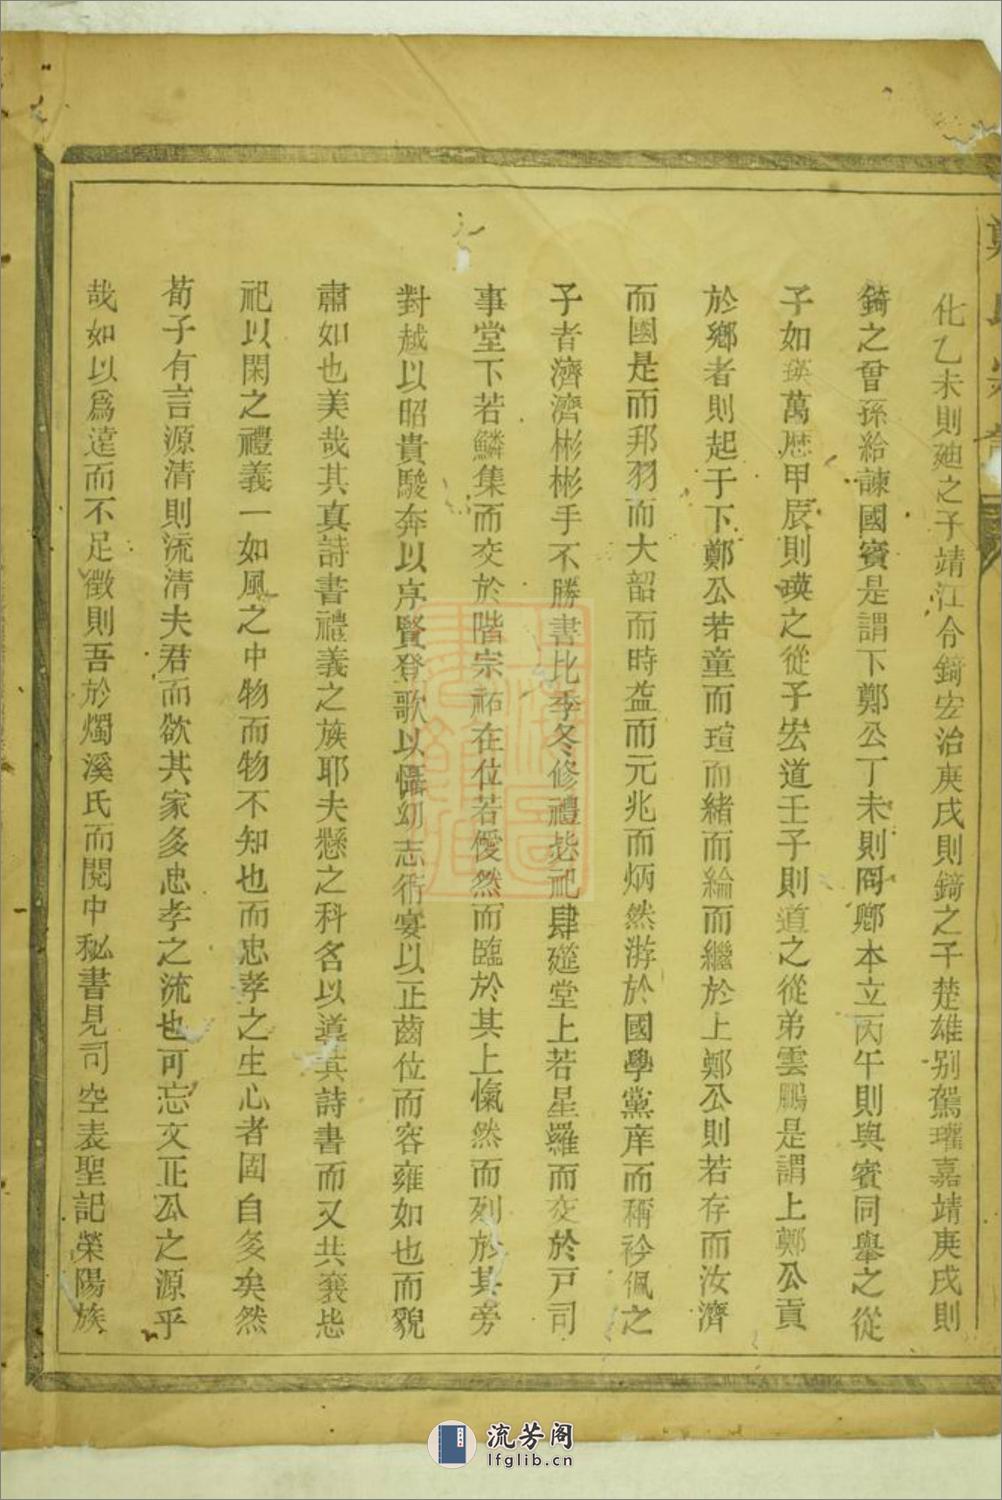 化乙未則廸之子靖江令錡宏治庚戌則錡之子楚雄别駕瓘嘉靖庚戌則
錡之曾孫給諫國賓是謂下鄭公丁未則冏卿本立丙午則與賓同舉之從
子如瑛萬歷甲辰則瑛之從子宏道壬子則道之從弟雲鵬是謂上鄭公貢
於鄉者則起于下鄭公若童而瑄而緒而綸而繼於上鄭公則若存而汝濟
而國是而邦羽而大韶而時益而元兆而炳然游於國學黨庠而稱衿佩之
子者濟濟彬彬手不勝書比季冬修禮毖祀肆筵堂上若星羅而交於戸司
事堂下若鱗集而交於階宗祏在位若僾然而臨於其上愾然而列於其旁
對越以昭貴駿奔以序賢登歌以懾幼志術宴以正齒位而容雍如也而貌
肅如也美哉其真詩書禮義之族耶夫懸之科名以導其詩書而又共襄毖
祀以閑之禮義一如風之中物而物不知也而忠孝之生心者固自多矣然
荀子有言源清則流清夫君而欲其家多忠孝之流也可忘文正公之源乎
哉如以爲遠而不足徵則吾於燭溪氏而閱中秘書見司空表聖記榮陽族
流芳阁
lfglib.cn